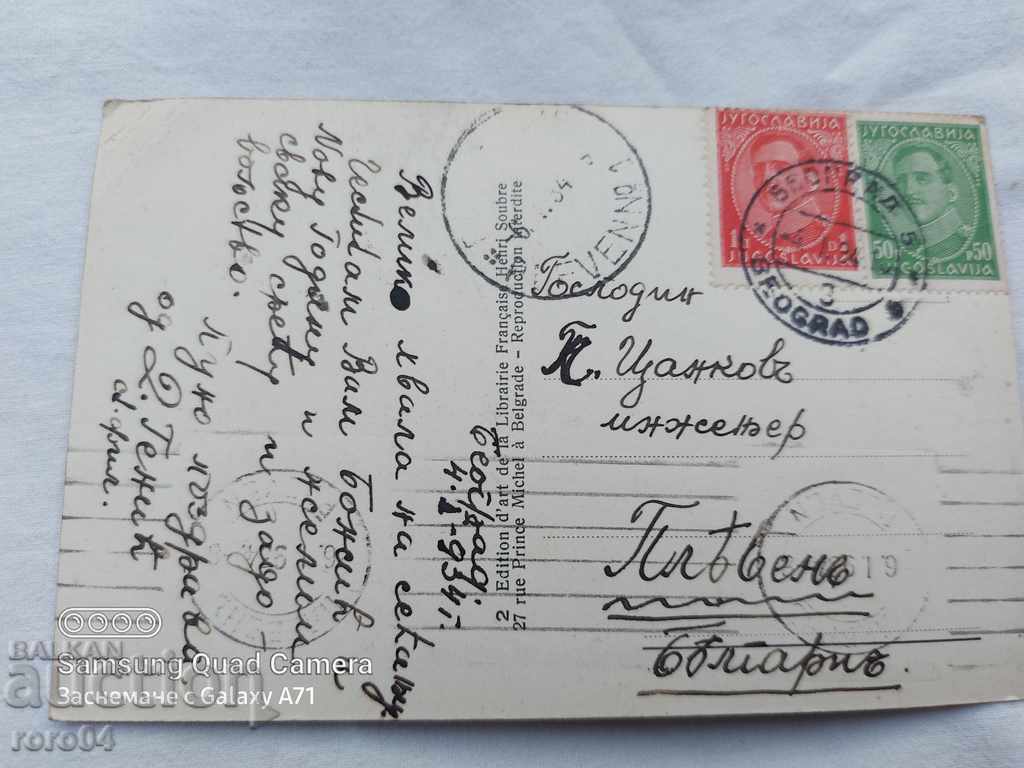 Велико хвала на сећању.
Честитам Вам Божић и
Нову Годину и желим
сваку срећу и задо-
вољство.
Пуно поздрава
од Д. Генић
Београд
4. I. 934 г.
2 Edition d'art de la Librairie Française Henri Soubre
27 rue Prince Michel à Belgrade - Reproduction interdite
ЈУГОСЛАВИЈА
1 D
JUGOSLAVIJA
ЈУГОСЛАВИЈА
50 P 50
JUGOSLAVIJA
БЕОГРАД 5
3
BEOGRAD
PLEVEN
34
19
Господин
К. Цанковъ
инжењер
Плѣвенъ
Samsung Quad Camera
Заснемане с Galaxy A71
BALKAN
auction
roro04